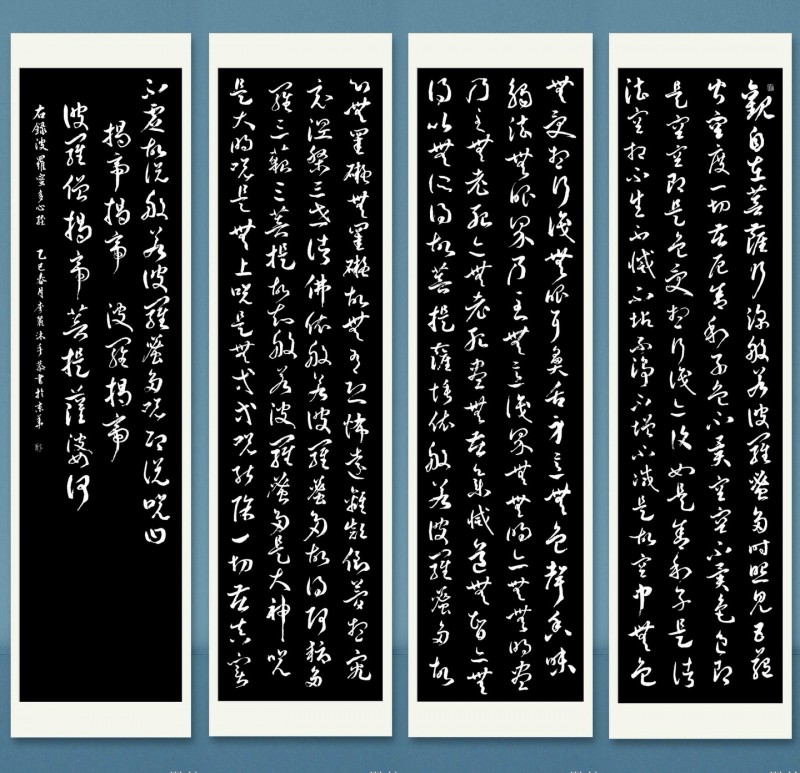 觀自在菩薩行深般若波羅蜜多時照見五蘊
皆空度一切苦厄舍利子色不異空空不異色色即
是空空即是色受想行識亦復如是舍利子是諸
法空相不生不滅不垢不淨不增不減是故空中無色
無受想行識無眼耳鼻舌身意無色聲香味
觸法無眼界乃至無意識界無無明亦無無明盡
乃至無老死亦無老死盡無苦集滅道無智亦無
得以無所得故菩提薩埵依般若波羅蜜多故
心無罣礙無罣礙故無有恐怖遠離顛倒夢想究
竟涅槃三世諸佛依般若波羅蜜多故得阿耨多
羅三藐三菩提故知般若波羅蜜多是大神咒
是大明咒是無上咒是無等等咒能除一切苦真實
不虛故說般若波羅蜜多咒即說咒曰
揭帝揭帝 波羅揭帝
波羅僧揭帝菩提薩婆訶
右錄波羅蜜多心經 乙巳春月李沐手恭書於京華